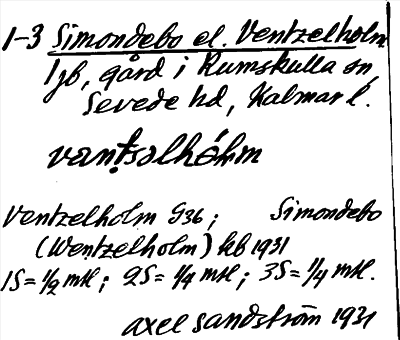 1-3 Simondebo el. Ventzelholm
1 jb, gård i Rumskulla sn,
Sevede hd, Kalmar l.
vantsəlhólm
Ventzelholm G36; Simondebo
(Wentzelholm) kb 1931
1S=1/2 mtl; 2S=1/4 mtl; 3S=1/4 mtl.
Axel Sandström 1931